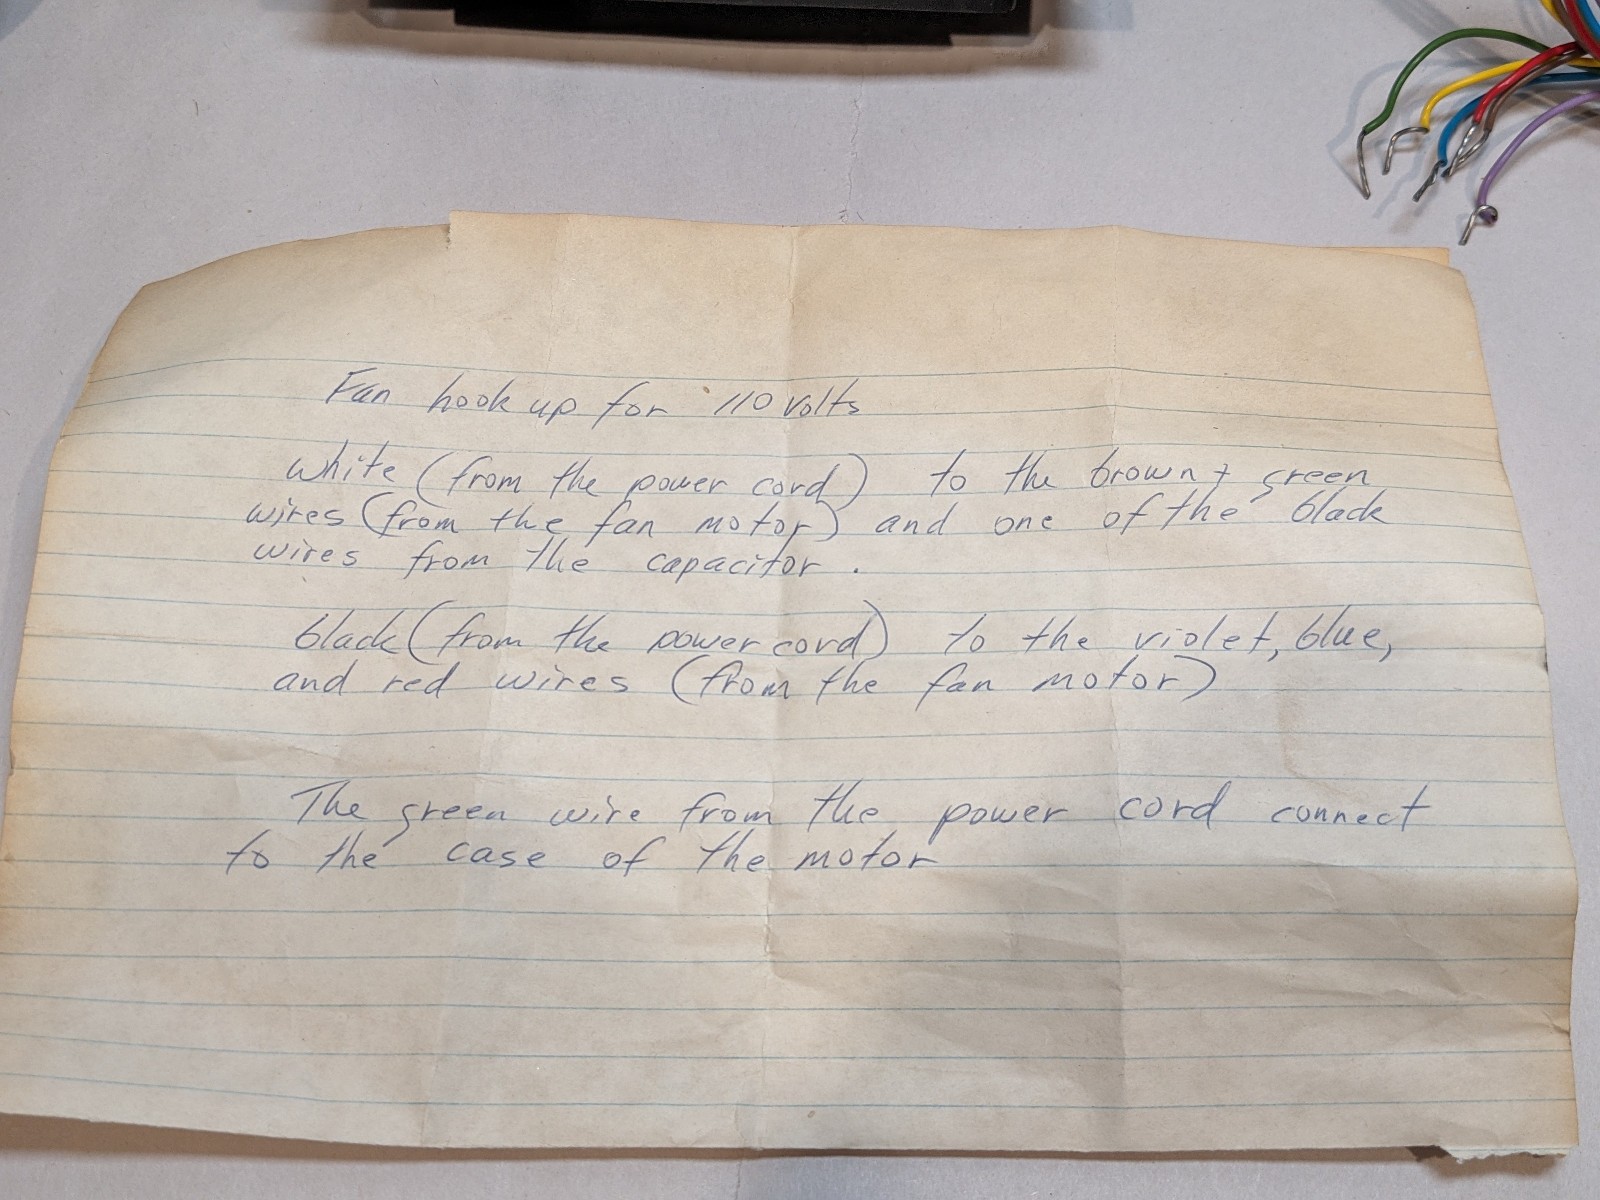 Fan hook up for 110 volts
white (from the power cord) to the brown + green
wires (from the fan motor) and one of the black
wires from the capacitor.
black (from the power cord) to the violet, blue,
and red wires (from the fan motor)
The green wire from the power cord connect
to the case of the motor